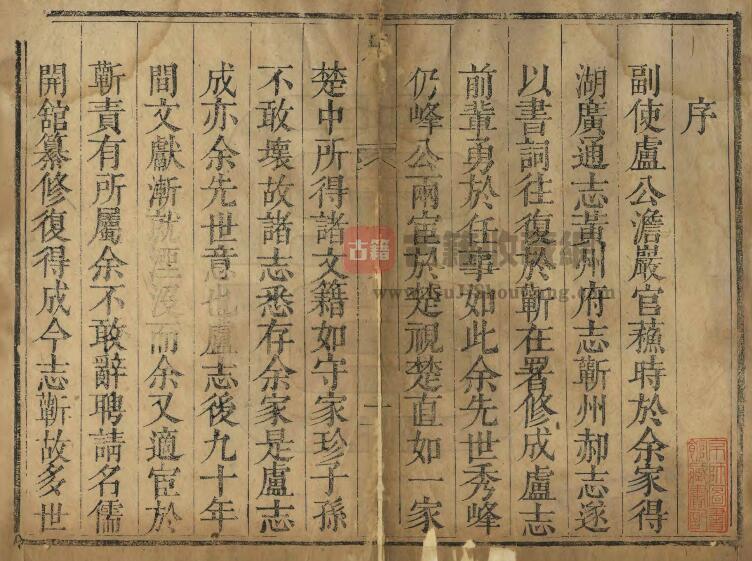 序
副使盧公澹巖官蘄時於余家得
湖廣通志黃州府志蘄州郝志遂
以書詞往復於蘄在署修成盧志
前輩勇於任事如此余先世秀峰
仍峰公兩宦於楚視楚直如一家
楚中所得諸文籍如守家珍子孫
不敢壞故諸志悉存余家是盧志
成亦余先世意也盧志後九十年
間文獻漸就湮沒而余又適宦於
蘄責有所屬余不敢辭聘請名儒
開舘纂修復得成今志蘄故多世
古籍